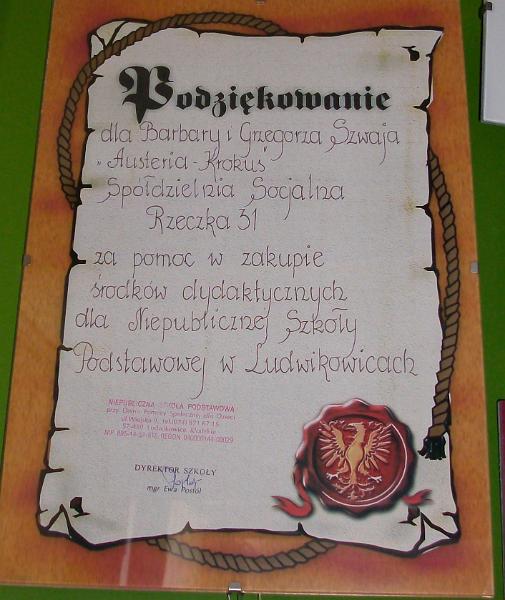 Podziękowanie
dla Barbary i Grzegorza Szwaja
„Austeria-Krokuś"
Spółdzielnia Socjalna
Rzeczka 31
za pomoc w zakupie
środków dydaktycznych
dla Niepublicznej Szkoły
Podstawowej w Ludwikowicach
NIEPUBLICZNA SZKOŁA PODSTAWOWA
przy Domu Pomocy Społecznej dla Dzieci
57-450 Ludwikowice Kłodzkie
DYREKTOR SZKOŁY
mgr Ewa Postół